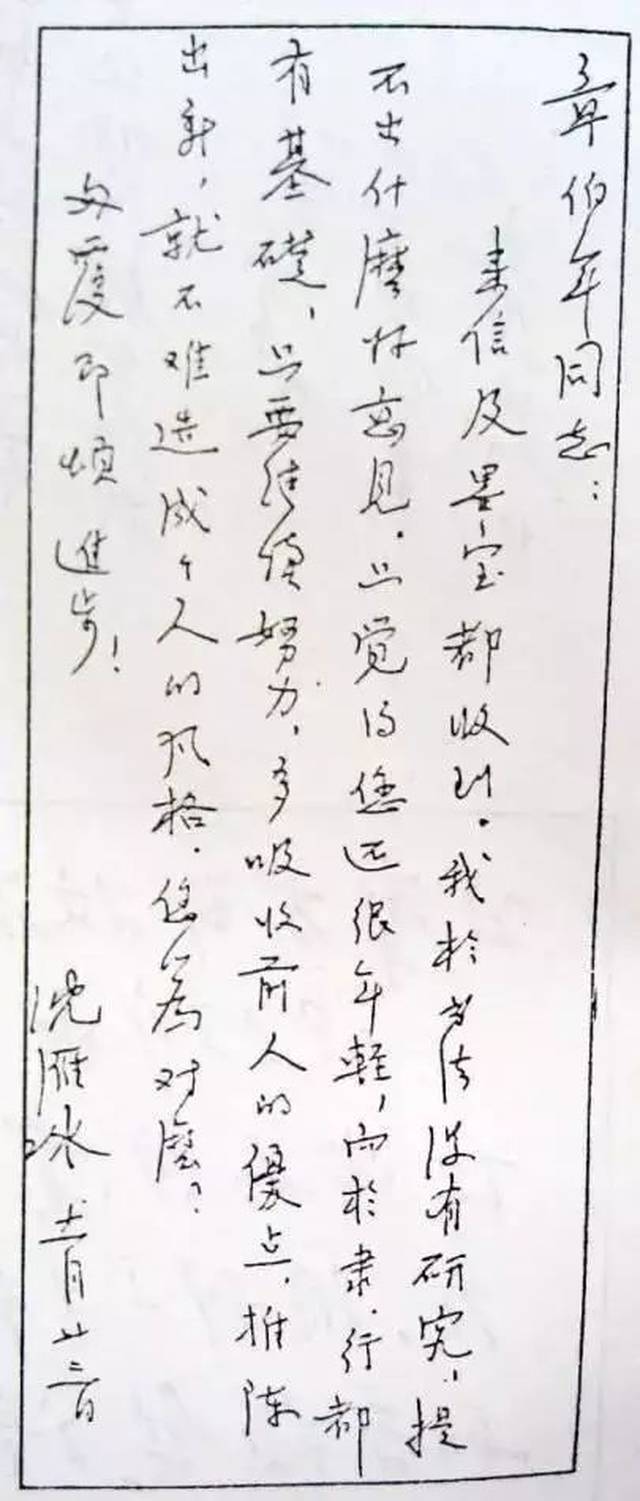 章伯年同志：
来信及墨宝都收到。我於书法没有研究，提
不出什麽好意见。只觉得您还很年轻，而於隶、行都
有基礎，只要继续努力，多吸收前人的優点，推陈
出新，就不难造成个人的风格。您以为对麽？
匆覆即颂進步！
沈雁冰 十一月廿三日